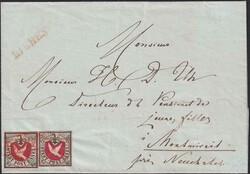 RICHEN
Monsieur
Monsieur H. D. Uh
Directeur du Pensionat des
jeunes filles
à Montmirail
près Neuchatel